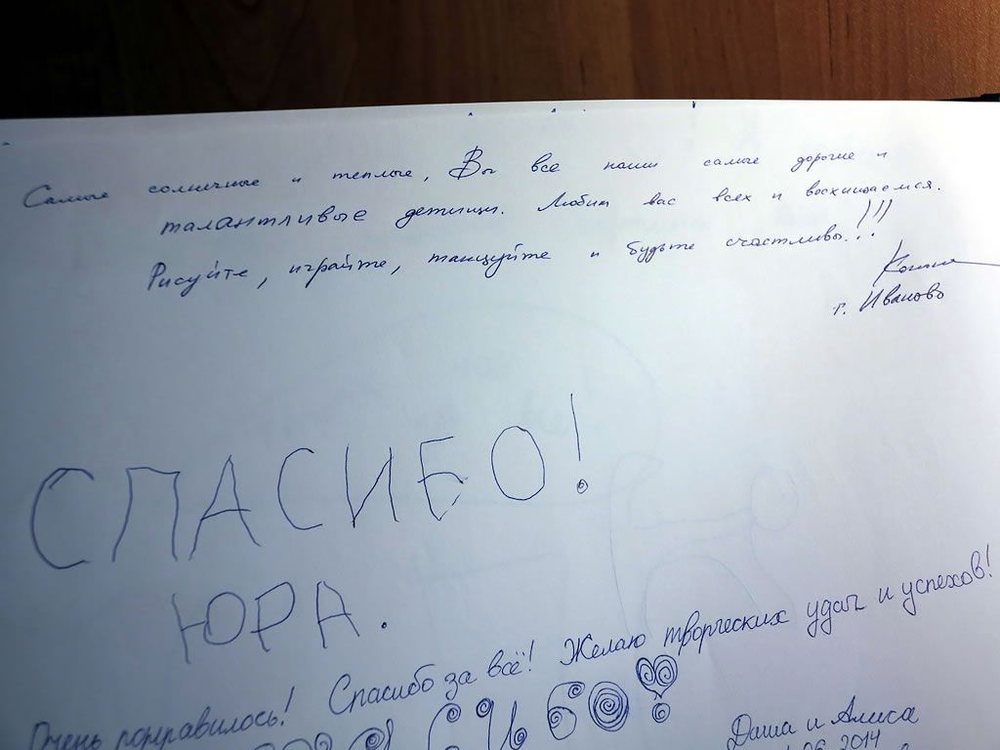 Самые солнечные и теплые, Вы все наши самые дорогие и
талантливые детищи. Любим вас всех и восхищаемся.
Рисуйте, играйте, танцуйте и будьте счастливы!!!
г. Иваново
СПАСИБО!
ЮРА.
Очень понравилось! Спасибо за всё! Желаю творческих удач и успехов!
Даша и Алиса
06.2014